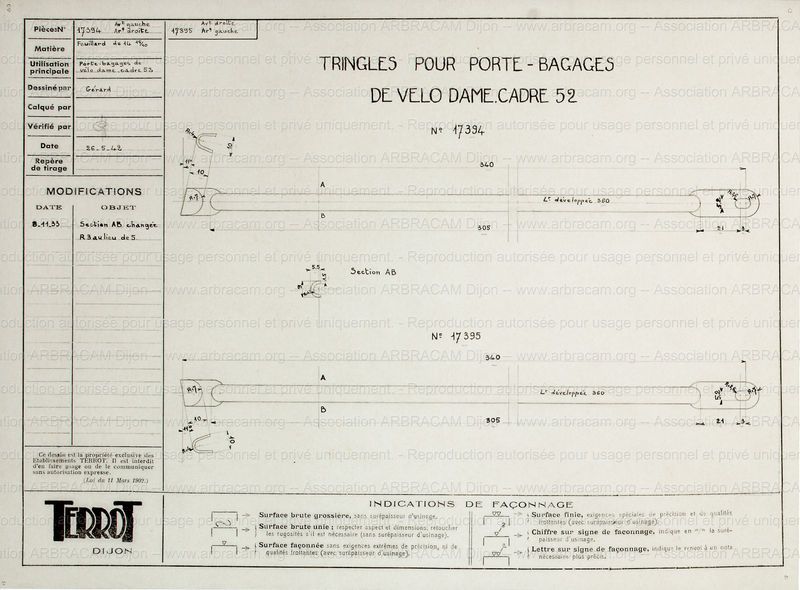 Pièce:N° 17394 Avt gauche Art droite
17395 Avt droite Art gauche
Matière Feuillard de 14
Utilisation principale Porte-bagages de vélo dame.cadre 53
Dessiné par Gérard
Calqué par
Vérifié par
Date 26_5_42
Repère de tirage
MODIFICATIONS
DATE OBJET
8_11_53 Section AB changée
R3 au lieu de 5
TRINGLES POUR PORTE-BAGAGES
DE VELO DAME.CADRE 52
N° 17394
10
340
A
B
Lr développée 360
305
21
5.5
Section AB
N° 17395
340
A
B
Lr développée 360
10
305
21
Ce dessin est la propriété exclusive des
Etablissements TERROT. Il est interdit
d'en faire usage ou de le communiquer
sans autorisation expresse.
(Loi du 11 Mars 1902.)
TERROT
DIJON
INDICATIONS DE FAÇONNAGE
Surface brute grossière, sans surépaisseur d'usinage.
Surface brute unie ; respecter aspect et dimensions, retoucher
les rugosités s'il est nécessaire (sans surépaisseur d'usinage).
Surface façonnée sans exigences extrêmes de précision, ni de
qualités frottantes (avec surépaisseur d'usinage).
Surface finie, exigences spéciales de précision et de qualités
frottantes (avec surépaisseur d'usinage).
Chiffre sur signe de façonnage, indique en m/m la suré-
paisseur d'usinage.
Lettre sur signe de façonnage, indique le renvoi à un nota
nécessaire plus précis.
Reproduction autorisée pour usage personnel et privé uniquement. - Association ARBRACAM Dijon -- www.arbracam.org